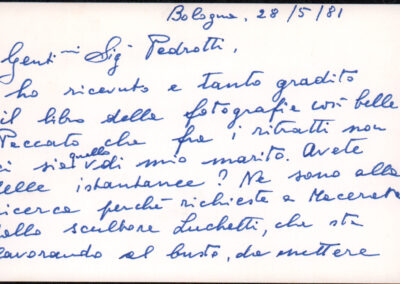 Bologna, 28/5/81
Genti mi Sigg Pedrotti,
ho ricevuto e tanto gradito
il libro delle fotografie così belle
Peccato che fra i ritratti non
ci sia quello di mio marito. Avete
delle istantanee? Ne sono alla
ricerca perchè richieste a Macerata
dallo scultore Luchetti, che sta
lavorando al busto, da mettere